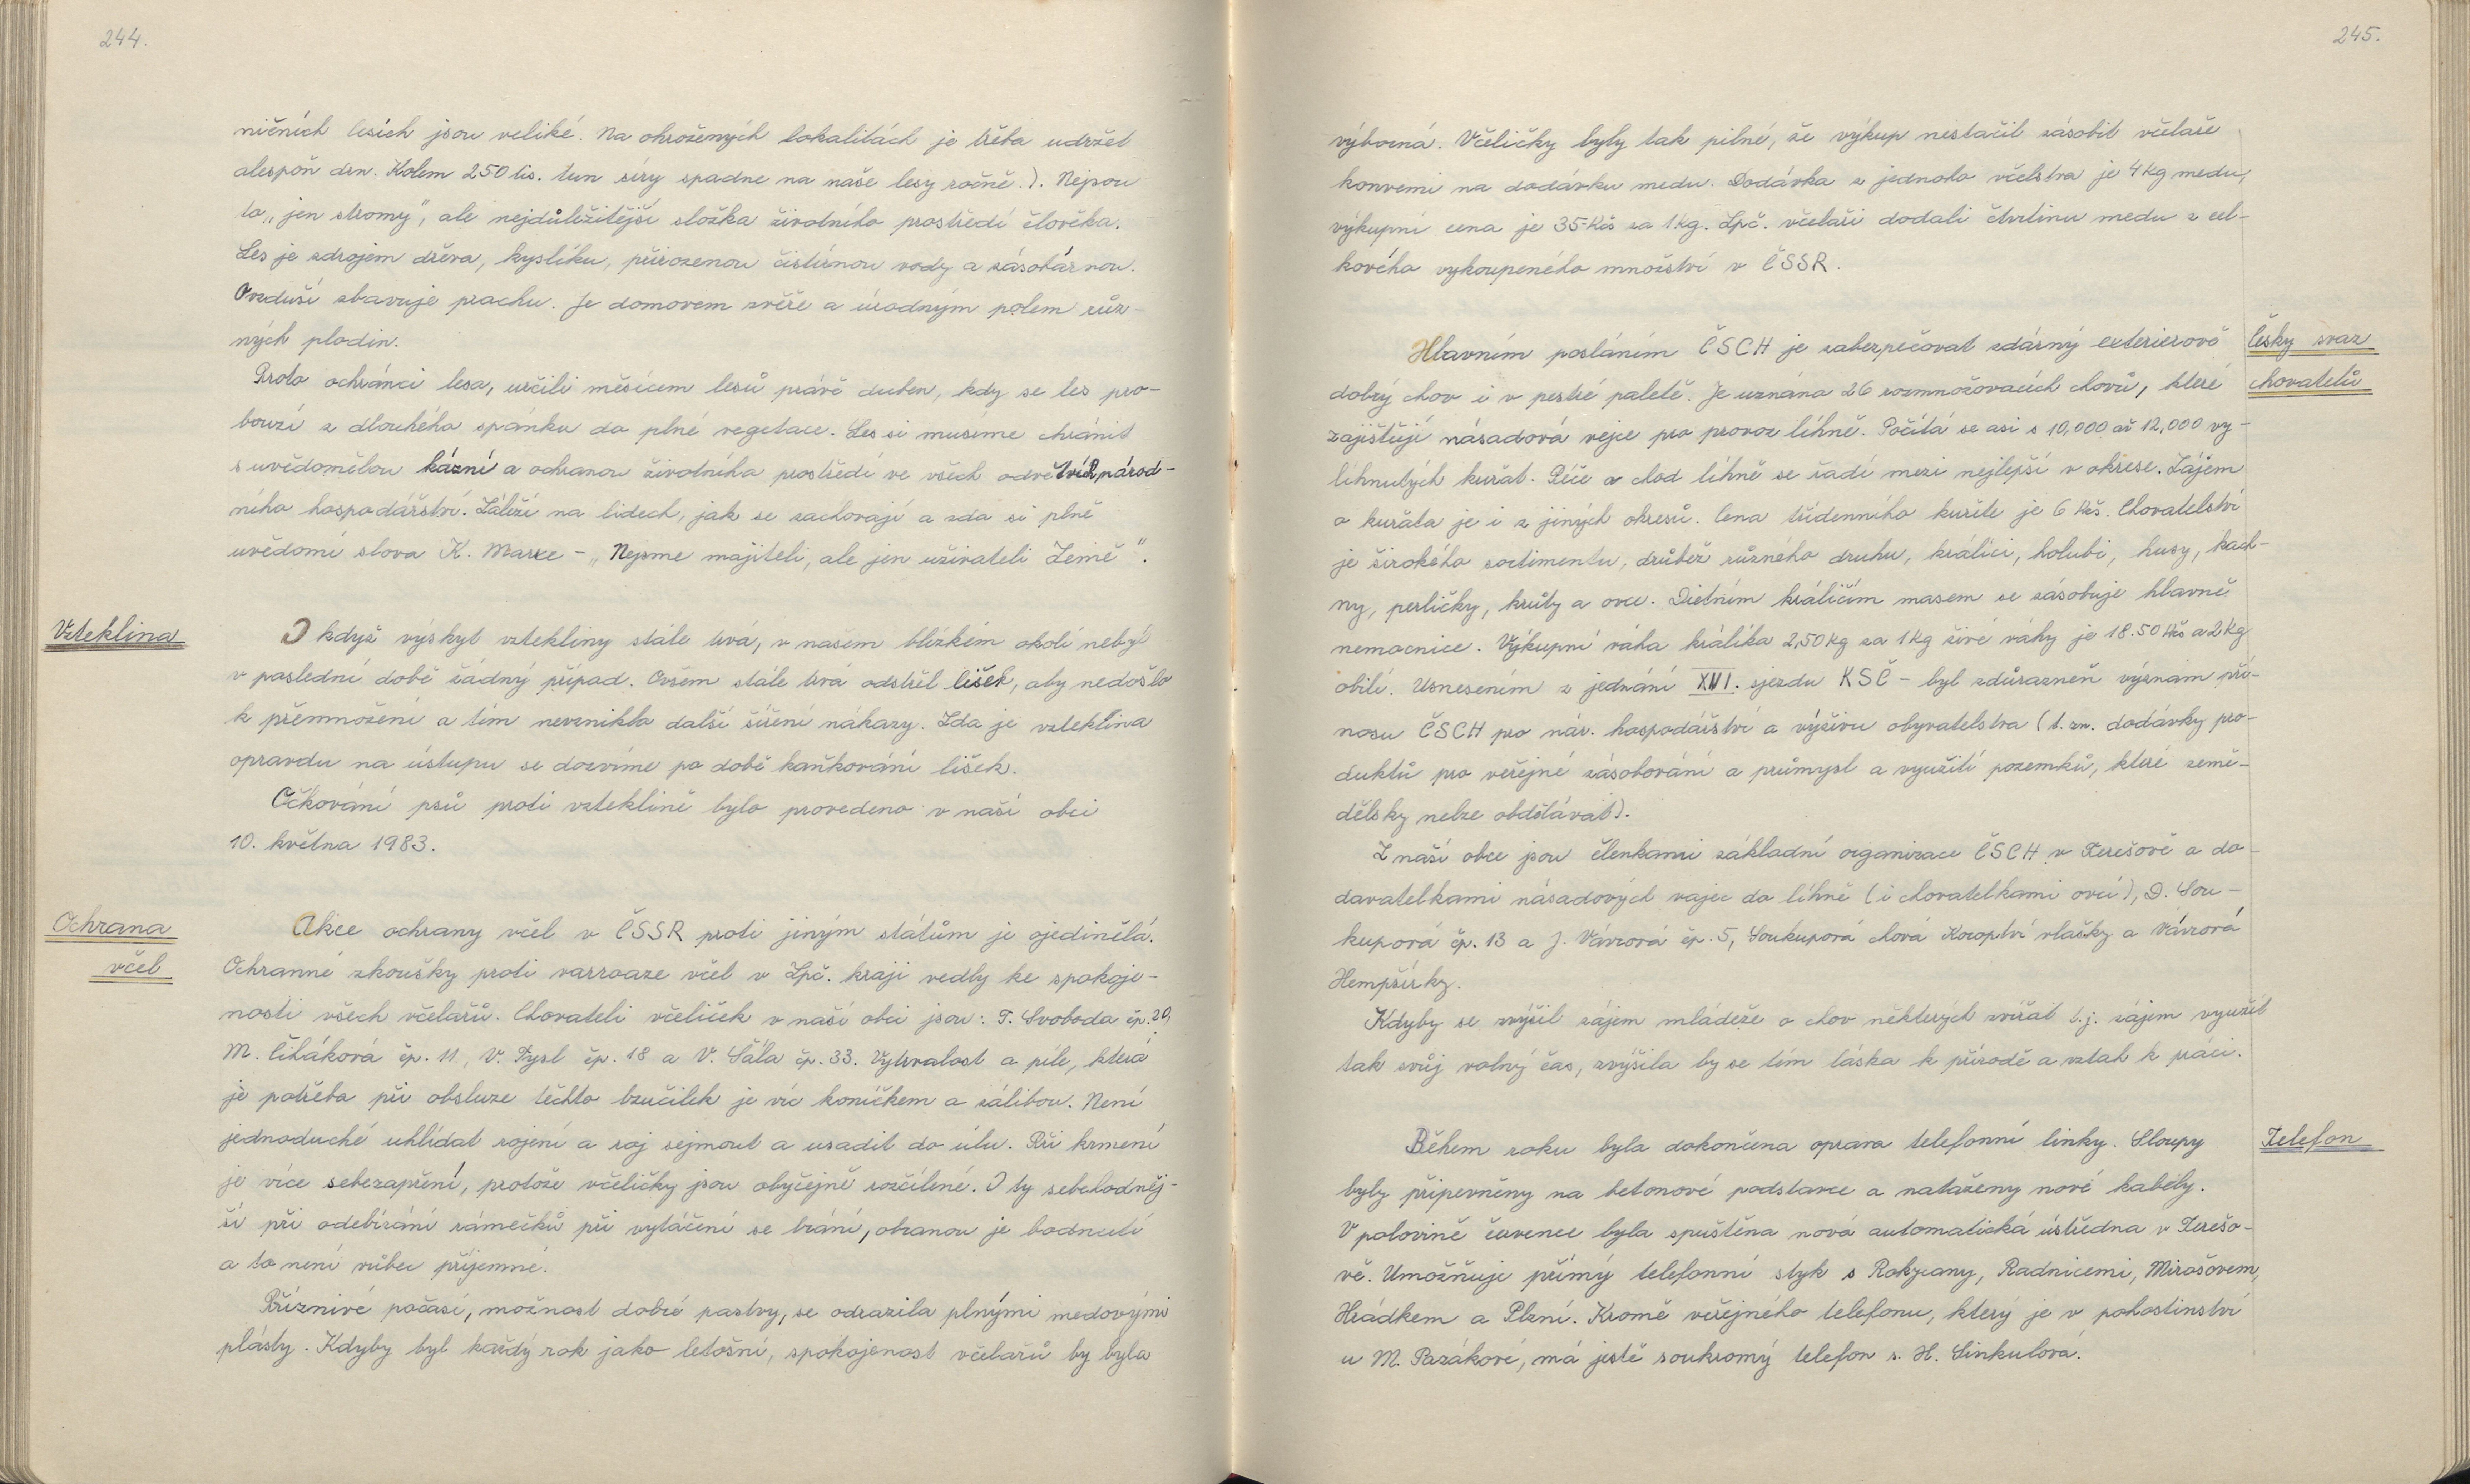 244.
ničních lesích jsou veliké. Na ohrožených lokalitách je třeba udržet
alespoň drn. Kolem 250 tis. tun síry spadne na naše lesy ročně.). Nejsou
to „jen stromy", ale nejdůležitější složka životního prostředí člověka.
Les je zdrojem dřeva, kyslíku, přirozenou čistírnou vody a zásobárnou.
Ovzduší zbavuje prachu. Je domovem zvěře a úrodným polem růz-
ných plodin.
Proto ochránci lesa, určili měsícem lesů právě duben, kdy se les pro-
bouzí z dlouhého spánku do plné vegetace. Les si museme chránit
s uvědomělou kázní a ochranou životního prostředí ve všech odvětvích národ-
ního hospodářství. Záleží na lidech, jak se zachovají a zda si plně
uvědomí slova K. Marxe - „Nejsme majiteli, ale jen uživateli Země".
Vzteklina
I když výskyt vztekliny stále trvá, v nasem blízkém okolí nebyl
v poslední době žádný případ. Ovšem stále trvá odstřel lišek, aby nedošlo
k přemnožení a tím nevznikla další šíření nákazy. Zda je vzteklina
opravdu na ústupu se dozvíme po době kaňkování lišek.
Očkování psů proti vzteklině bylo provedeno v naší obci
10. května 1983.
Ochrana
včel
Akce ochrany včel v ČSSR proti jiným státům je ojedinělá.
Ochranné zkoušky proti varroaze včel v Zpč. kraji vedly ke spokoje-
nosti všech včelařů. Chovateli včeliček v naší obci jsou: T. Svoboda čp. 20,
M. Čiháková čp. 11, V. Tysl čp. 18 a V. Šála čp. 33. Vytrvalost a píle, která
je potřeba při obsluze těchto bzučilek je víc koníčkem a zálibou. Není
jednoduché uhlídat rojení a roj sejmout a usadit do úlu. Při krmení
je více sebezapření, protože včeličky jsou obyčejně rozčílené. I ty sebehodněj-
ší při odebírání rámečků při vytáčení se brání, obranou je bodnutí
a to není vůbec příjemné.
Příznivé počasí, možnost dobré pastvy, se odrazila plnými medovými
plásty. Kdyby byl každý rok jako letošní, spokojenost včelařů by byla
245.
výborná. Včeličky byly tak pilné, že výkup nestačil zásobit včelaře
konvemi na dodávku medu. Dodávka z jednoho včelstva je 4 kg medu,
výkupní cena je 35.- Kčs za 1 kg. Zpč. včelaři dodali čtvrtinu medu z cel-
kového vykoupeného množství v ČSSR.
Český svaz
chovatelů
Hlavním posláním ČSCH je zabezpečovat zdárný exterierově
dobrý chov i v pestré paletě. Je uznána 26 rozmnožovacích chovů, které
zajišťují násadová vejce pro provoz líhně. Počítá se asi s 10,000 až 12,000 vy-
líhnutých kuřat. Péče a chod líhně se řadí mezi nejlepší v okrese. Zájem
o kuřata je i z jiných okresů. Cena třídenního kuřete je 6 Kčs. Chovatelství
je širokého sortimentu, drůbež různého druhu, králíci, holubi, husy, kach-
ny, perličky, krůty a ovce. Dietním králičím masem se zásobuje hlavně
nemocnice. Výkupní váha králíka 2,50 kg za 1 kg živé váhy je 18.50 Kčs a 2 kg
obilí. Usnesením z jednání XVI. sjezdu KSČ - byl zdůrazněn význam pří-
nosu ČSCH pro nár. hospodářství a výživu obyvatelstva (t. zn. dodávky pro-
duktů pro veřejné zásobování a průmysl a využití pozemků, které země-
dělsky nelze obdělávat).
Z naší obce jsou členkami základní organizace ČSCH v Terešově a do-
davatelkami násadových vajec do líhně (i chovatelkami ovcí), D. Sou-
kupová čp. 13 a J. Vávrová čp. 5, Soukupová chová Koroptví vlašky a Vávrová
Hempšírky.
Kdyby se zvýšil zájem mládeže o chov některých zvířat t. j. zájem využít
tak svůj volný čas, zvýšila by se tím láska k přírodě a vztah k práci.
Telefon
Během roku byla dokončena oprava telefonní linky. Sloupy
byly připevněny na betonové podstavce a nataženy nové kabely.
V polovině července byla spuštěna nová automatická ústředna v Terešo-
vě. Umožňuje přímý telefonní styk s Rokycany, Radnicemi, Mirošovem,
Hrádkem a Plzní. Kromě veřejného telefonu, který je v pohostinství
u M. Pazákové, má jestě soukromý telefon s. H. Sinkulová.